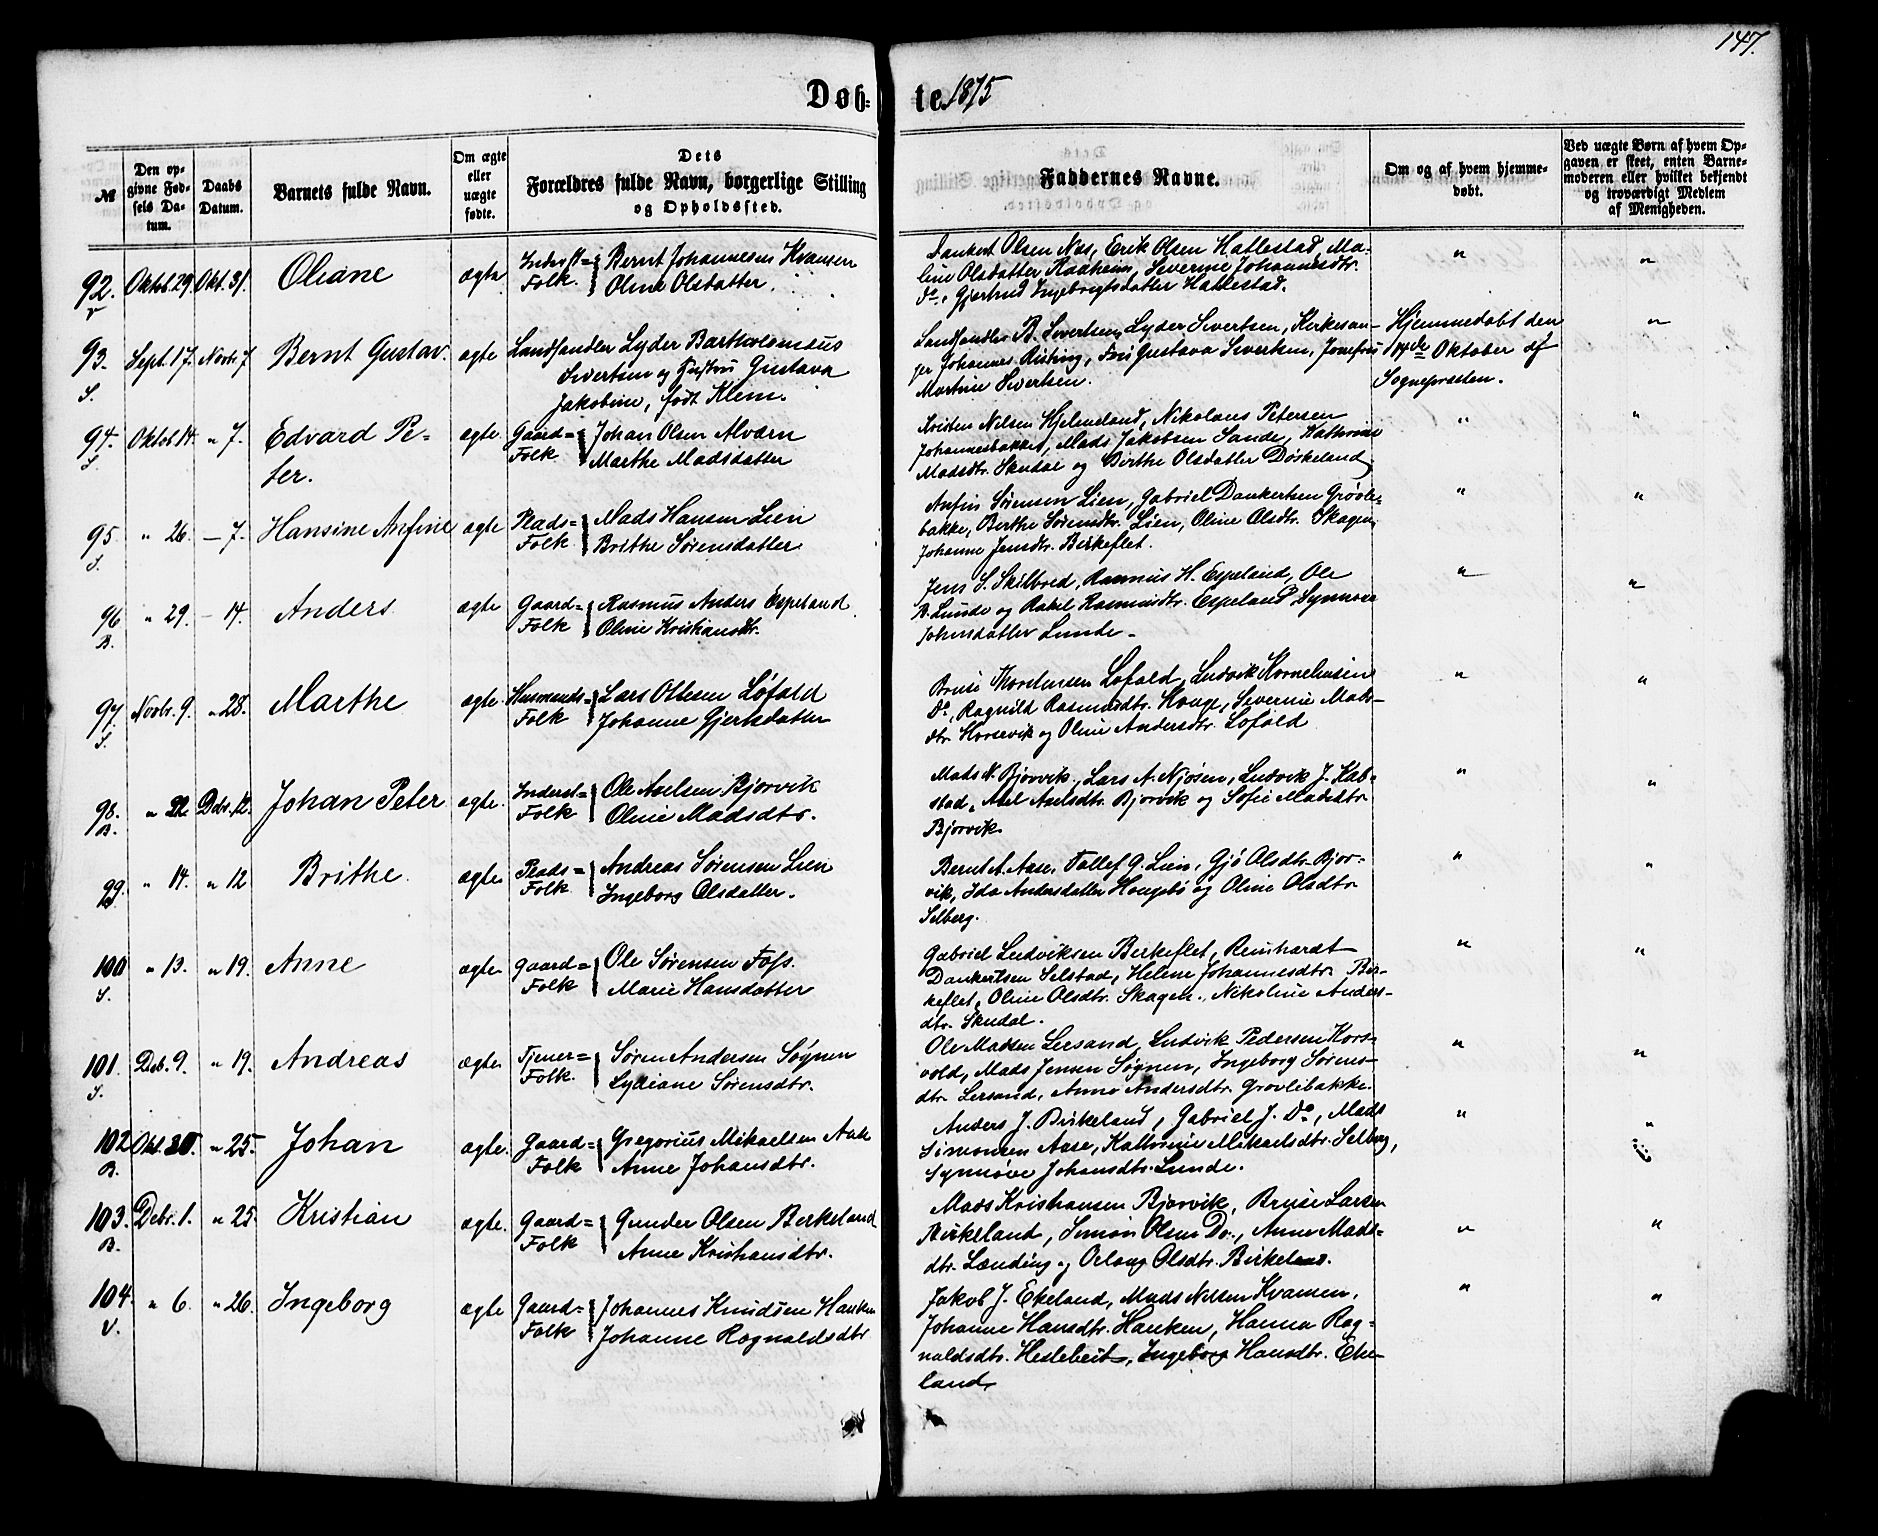 147.
Døb= te 1875
№
Den op-
givne Fød-
sels Da-
tum.
Daabs
Datum.
Barnets fulde Navn.
Om ægte
eller
uægte
fødte.
Dets
Forældres fulde Navn, borgerlige Stilling
og Opholdssted.
Faddernes Navne.
Om og af hvem hjemme-
døbt.
Ved uægte Børn af hvem Op-
gaven er skeet, enten Barne-
moderen eller hvilket bekjendt
og troværdigt Medlem
af Menigheden.
92. Oktob. 29. Okt. 31. Oliane ægte Inderst= Bernt Johannesen Kvamen
Folk. Oline Olsdatter.
Dankert Olsen Nes, Erik Olsen Hatlestad, Ma-
line Olsdatter Kaaheim, Severine Johannesdtr.
Do, Gjertrud Ingebrigtsdatter Hatlestad.
" "
93. S. Sept. 17. Novbr 7. Bernt Gustav. ægte Landhandler Lyder Bartholomæus
Sivertsen og Hustru Gustava
Jakobine, født Klem.
Landhandler B. Sivertsen, Lyder Sivertsen, Kirkesan-
ger Johannes Ritring, Fru Gustava Sivertsen, Jomfru
Martine Sivertsen.
Hjemmedøbt den
14de Oktober af
Sognepræsten.
"
94. S. Oktob 14. " 7. Edvard Pe-
ter. ægte. Gaard= Johan Olsen Alværn
Folk Marthe Madsdatter
Kristen Nilsen Hjelmeland, Nikolaus Petersen
Johannesbakken, Mads Jakobsen Sande, Kathrine
Madsdtr. Skudal og Birthe Olsdatter Døskeland,
" "
95. S. " 26. – 7. Hansine Anfine ægte Plads= Mads Hansen Lien
Folk Brithe Sørensdatter
Anfin Sørensen Lien, Gabriel Dankertsen Grøvle-
bakke, Birthe Sørensdtr. Lien, Oline Olsdtr. Skagen,
Johanne Jensdtr. Birkeflet.
" "
96 B. " 29. – 14. Anders ægte Gaard= Rasmus Anders Espeland
Folk Oline Kristiansdtr.
Jens S. Skilbred, Rasmus H. Espeland, Ole
R. Lunde og Rakel Rasmusdtr. Espeland Synnøve
Johansdatter Lunde.
" "
97 S. Novbr. 9. " 28. Marthe ægte. Husmands= Lars Ottesen Løfald
Folk Johanne Gjertsdatter
Bruse Thorstensen Lofald, Ludvik Korneliusen
Do, Ragnild Rasmusdtr. Hauge, Severine Mads-
dtr. Horsevik og Oline Andersdtr. Lofald
" "
98. B. " 22. Debr. 12. Johan Peter ægte. Inderst= Ole Axelsen Bjorvik
Folk Oline Madsdtr.
Mads N. Bjorvik, Lars A. Njøsen, Ludvik J. Kab-
stad, Axel Axelsdtr. Bjorvik og Sofie Madsdtr
Bjorvik.
" "
99. " 14. " 12 Brithe. ægte. Plads= Andreas Sørensen Lien
Folk Ingeborg Olsdatter.
Bernt A. Aase, Tollef G. Lien, Gjø Olsdtr. Bjor-
vik, Ida Andersdatter Haugebø og Oline Olsdtr
Selberg.
" "
100 S. " 13. " 19. Anne ægte. Gaard= Ole Sørensen Foss.
Folk Marie Hansdatter
Gabriel Ludviksen Birkeflet, Reinhardt
Dankertsen Selstad, Helene Johannesdtr. Bir-
keflet, Oline Olsdtr. Skagen, Nikoline Anders-
dtr. Skudal.
" "
101. S. Deb. 9. " 19. Andreas ægte. Tjener= Søren Andersen Søgnen
Folk. Lydiane Sørensdtr.
Ole Madsen Lersand, Ludvik Pedersen Kors-
vold, Mads Jensen Søgnen, Ingeborg Sørens-
dtr. Lersand, Anne Andersdtr. Grøvlebakke.
" "
102 B. Okt. 30. " 25. Johan ægte. Gaard= Gregorius Mikaelsen Aase
Folk Anne Johansdtr.
Anders J. Birkeland, Gabriel J. Do, Mads
Simonsen Aase, Kathrine Mikaelsdtr. Selberg,
Synnøve Johansdtr. Lunde.
" "
103. B. Debr. 1. " 25. Kristian ægte. Gaard= Gunder Olsen Birkeland
Folk Anne Kristiansdtr.
Mads Kristiansen Bjorvik, Bruse Larsen
Birkeland, Simon Olsen Do., Anne Mads-
dtr. Lænding og Orlaug Olsdtr. Birkeland.
" "
104. V. " 6. " 26. Ingeborg ægte Gaard= Johannes Knudsen Hauken
Folk Johanne Ragnaldsdtr
Jakob J. Ekeland, Mads Nilsen Kvamen,
Johanne Hansdtr. Hauken, Hanna Rag-
naldsdtr. Hesleheit, Ingeborg Hansdtr. Eke-
land,
" "